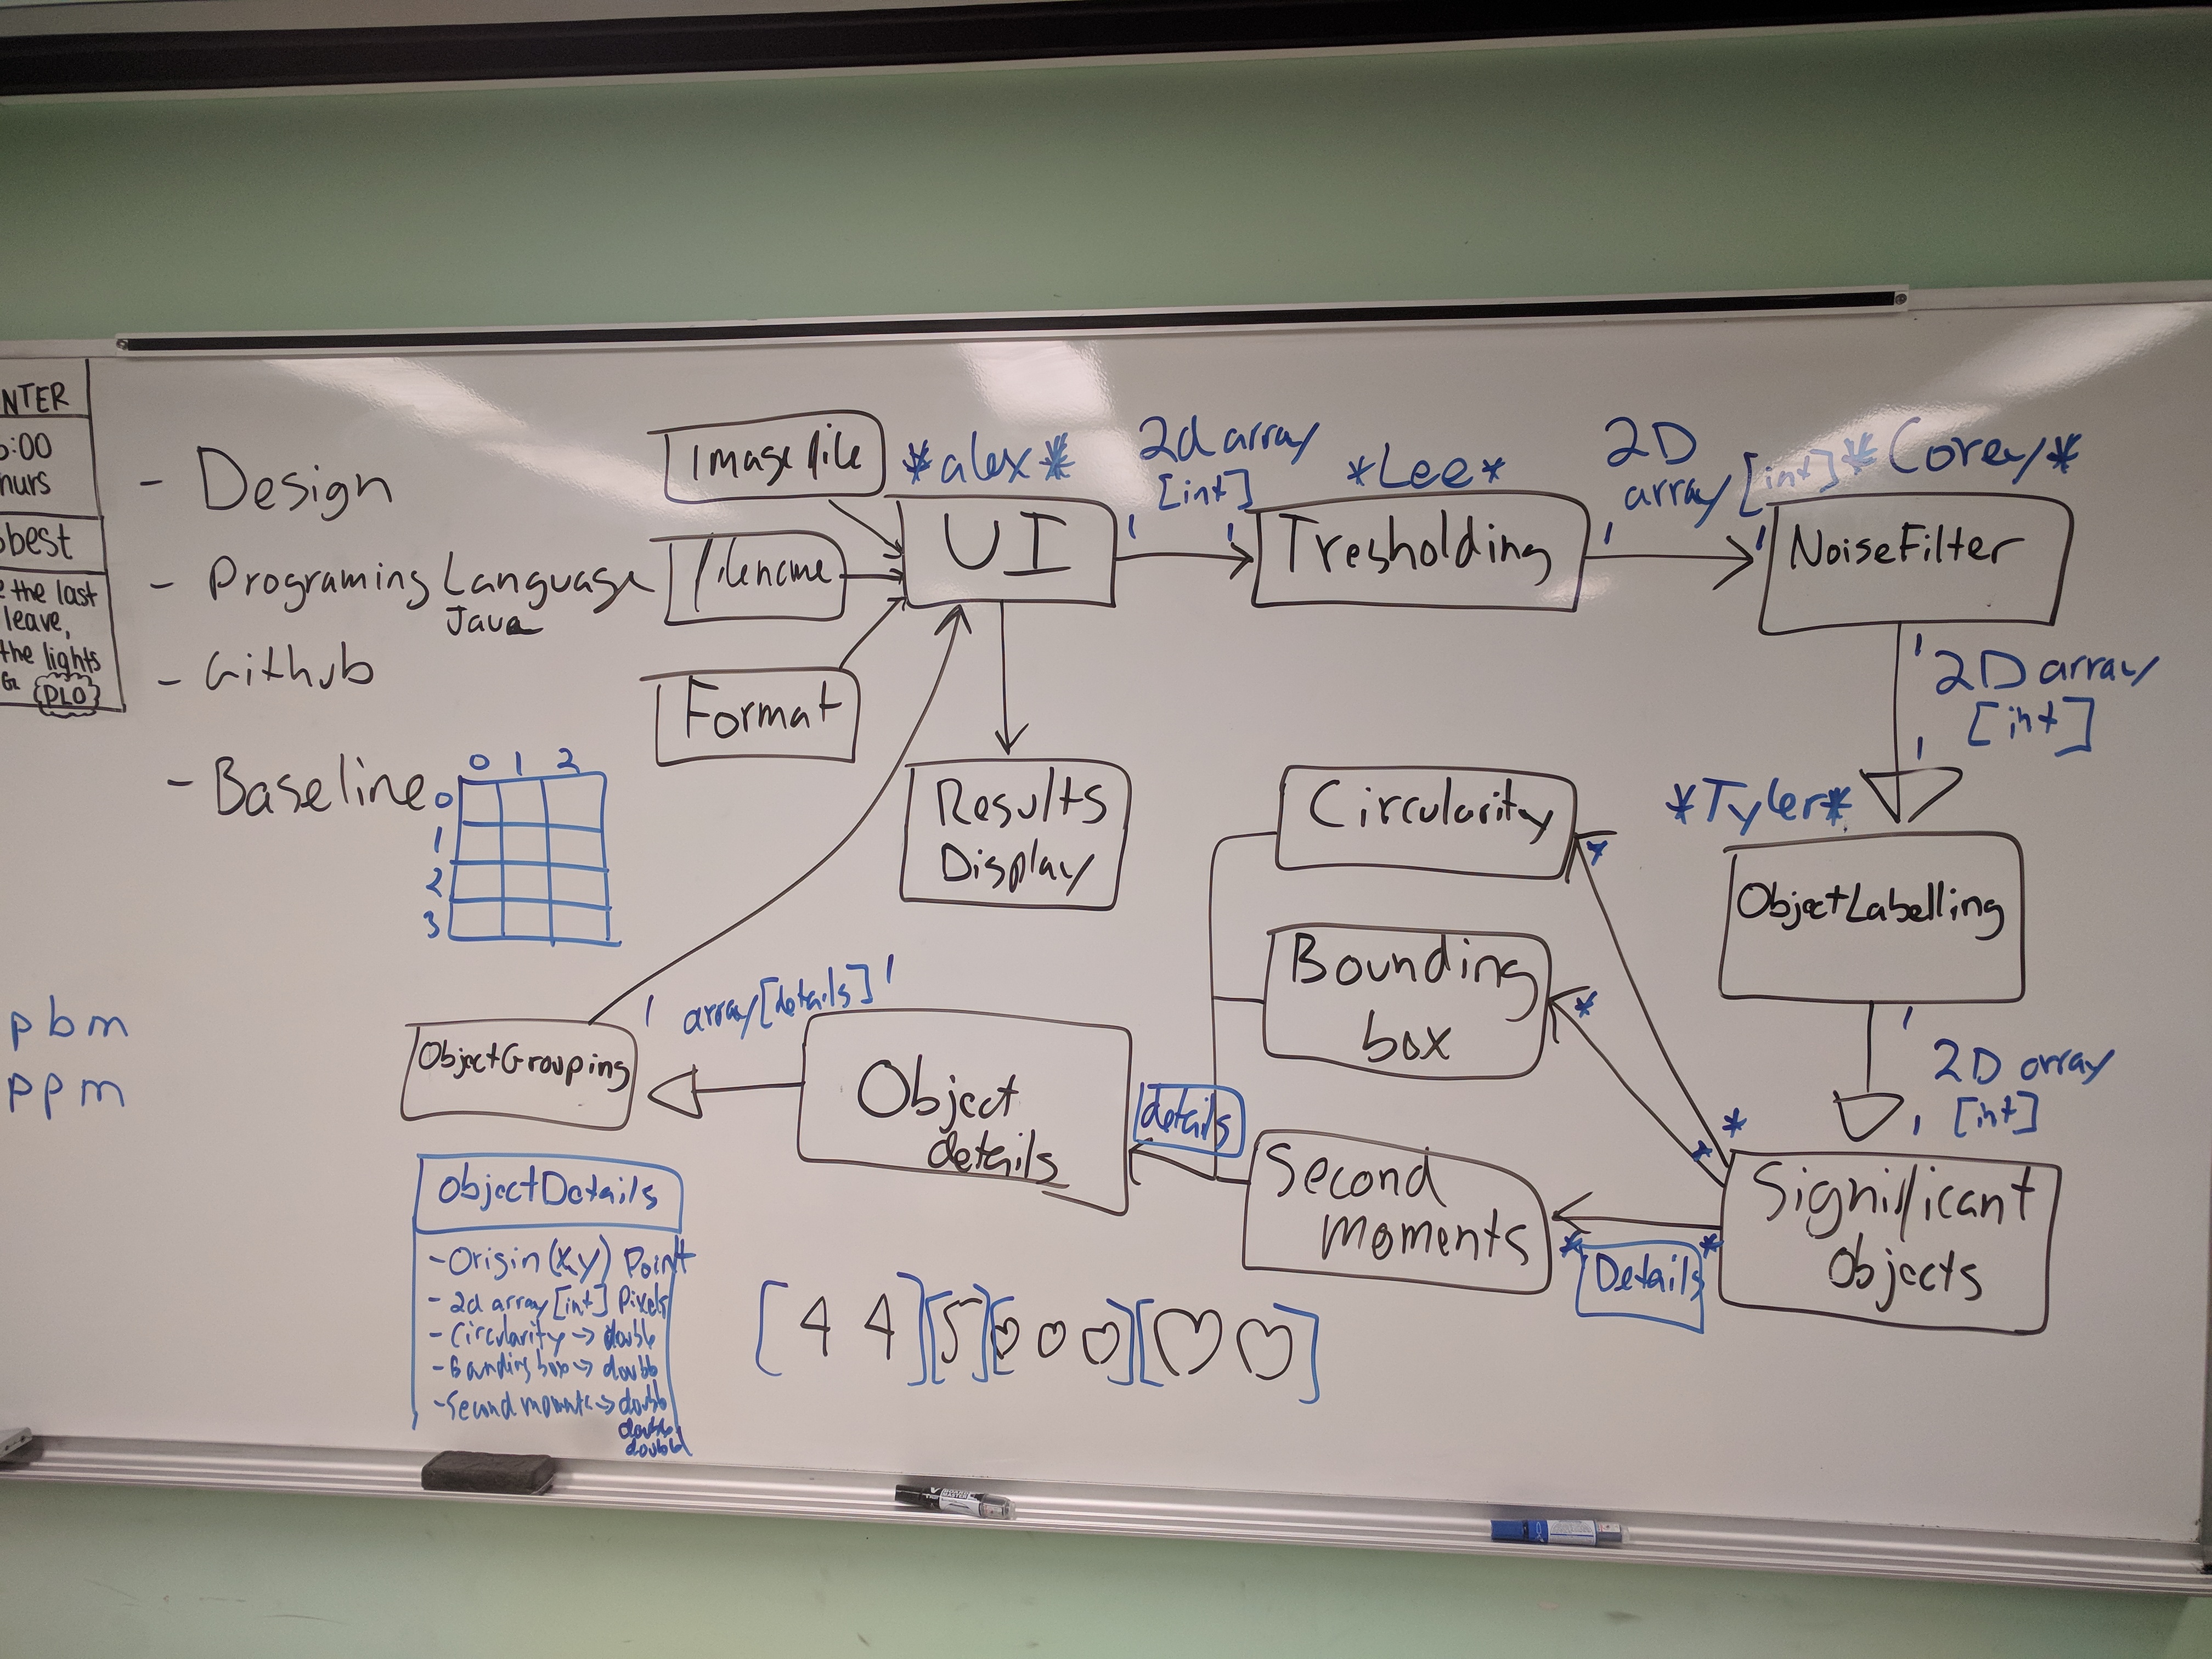 NTER
:00
hurs
best
the last
leave,
the lights
DLO
- Design
- Programing Language
Java
- Github
- Baseline
0 1 2
0
1
2
3
pbm
ppm
Image file
filename
Format
*alex*
UI
2d array
[int]
1 1
*Lee*
Tresholding
2D
array [int]
1 1
*Corey*
NoiseFilter
1
2D array
[int]
1
*Tyler*
ObjectLabelling
1
2D array
[int]
1
Significant
Objects
*
*
*
Details
*
Results
Display
Circularity
*
Bounding
box
*
Second
moments
*
details
Object
details
1 array[details] 1
ObjectGrouping
ObjectDetails
- Origin (x,y) Point
- 2d array [int] Pixels
- Circularity → double
- Bounding box → double
- Second moments → double
double
double
[4 4][5][♡♡♡][♡♡]